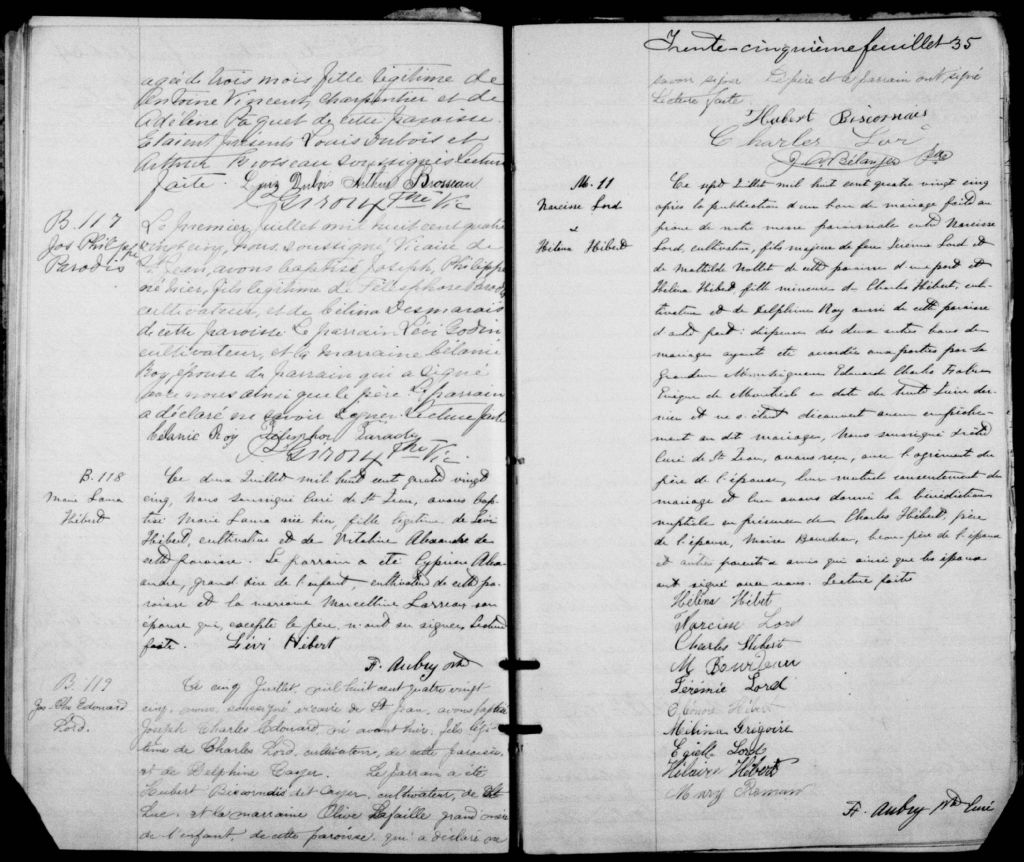 agée de trois mois fille légitime de
Antoine Vincent, charpentier et de
Adéline Paquet de cette paroisse
Etaient présents Louis Dubois et
Arthur Brosseau soussignés lecture
faite. Louis Dubois Arthur Brosseau
Ptre Vic
B. 117
Jos Philippe
Paradis
Le premier, Juillet mil huit cent quatre
vingt cinq, nous, soussigné Vicaire de
St Jean, avons baptisé Joseph, Philippe
né hier, fils légitime de Télésphore Paradis
cultivateur, et de Célina Desmarais
de cette paroisse Le parrain Lévi Godin
cultivateur, et la marraine Mélanie
Roy, épouse du parrain qui a signé
avec nous ainsi que le père. Le parrain
a déclaré ne savoir signer. Lecture faite
Mélanie Roy Paradis
Ptre Vic.
B. 118
Marie Laura
Hébert
Ce deux Juillet mil huit cent quatre vingt
cinq, Nous soussigné Curé de St Jean, avons bap-
tisé Marie Laura née hier, fille légitime de Lévi
Hébert, cultivateur et de Vitaline Alexandre de
cette paroisse. Le parrain a été Cyprien Alex-
andre, grand père de l'enfant, cultivateur de cette pa-
roisse et la marraine Marcelline Lareau son
épouse qui, excepté le père, n'ont su signer. Lecture
faite. Lévi Hébert
F. Aubry ptre
B. 119
Jos-Chs Edouard
Lord.
Ce cinq Juillet, mil huit cent quatre vingt
cinq, nous, soussigné vicaire de St Jean, avons baptisé
Joseph Charles Edouard, né avant hier, fils légi-
time de Charles Lord, cultivateur, de cette paroisse,
et de Delphine Cayer. Le parrain a été
Hubert Bisconnais dit Cayer, cultivateur, de St
Luc, et la marraine Olive Lafaille, grand'mère
de l'enfant, de cette paroisse, qui a déclaré ne
Trente-cinquième feuillet 35
savoir signer Le père et le parrain ont signé
Lecture faite.
Hubert Bisconnais
Charles Lord
Bélanger Ptre
M. 11
Narcisse Lord
&
Hélèna Hébert
Ce sept Juillet mil huit cent quatre vingt cinq
après la publication d'un banc de mariage faite au
prône de notre messe paroissiale entre Narcisse
Lord, cultivateur, fils majeur de feu Jérémie Lord et
de Mathilde Nollet de cette paroisse d'une part et
Hélèna Hébert fille mineure de Charles Hébert, cul-
tivateur et de Delphine Roy aussi de cette paroisse
d'autre part: dispense des deux autres bans de
mariage ayant été accordée aux parties par Sa
Grandeur Monseigneur Edouard Charles Fabre
Evêque de Montréal en date du trente Juin der-
nier et ne s'étant découvert aucun empêche-
ment au dit mariage, Nous soussigné prêtre
Curé de St Jean, avons reçu, avec l'agrément du
père de l'épouse, leur mutuel consentement de
mariage et leur avons donné la bénédiction
nuptiale en présence de Charles Hébert, père
de l'épouse, Moïse Bourdeau, beau-père de l'époux
et autres parents & amis qui ainsi que les époux
ont signé avec nous. Lecture faite
Hélèna Hébert
Narcisse Lord
Charles Hébert
M Bourdeau
Jérémie Lord
Hébert
Mélina Grégoire
Lord
Hilaire Hébert
Mary
F. Aubry Ptre Curé